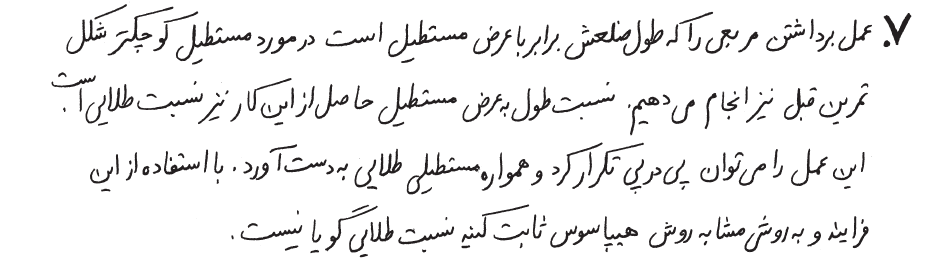 ۷. عمل برداشتن مربعی را که طول ضلعش برابر با عرض مستطیل است در مورد مستطیل کوچکتر شکل
تمرین قبل نیز انجام می‌دهیم. نسبت طول به عرض مستطیل حاصل از این کار نیز نسبت طلایی است.
این عمل را می‌توان پی در پی تکرار کرد و همواره مستطیلی طلایی به دست آورد. با استفاده از این
فرایند و به روشی مشابه روش هیپاسوس ثابت کنید نسبت طلایی گویا نیست.